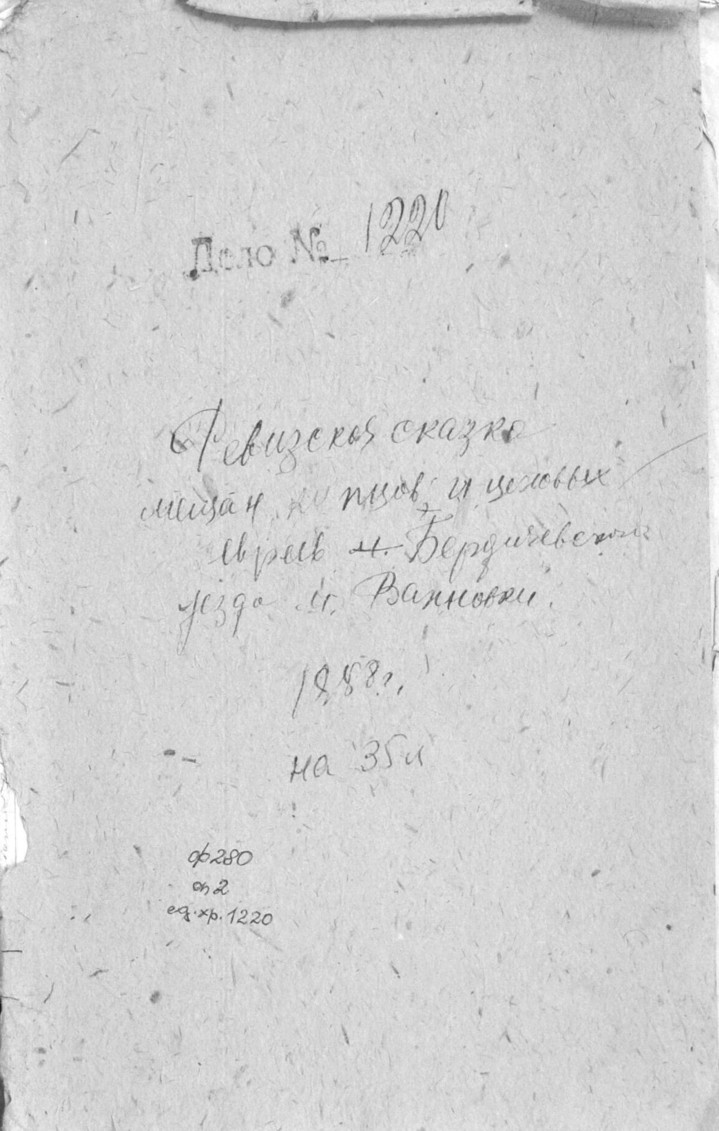 Дело № 1220
Ревизская сказка
мещан купцов и цеховых
евреев м. Бердичевского
уезда м. Вахновки.
1858г.
на 35л
ф 280
оп 2
ед.хр. 1220